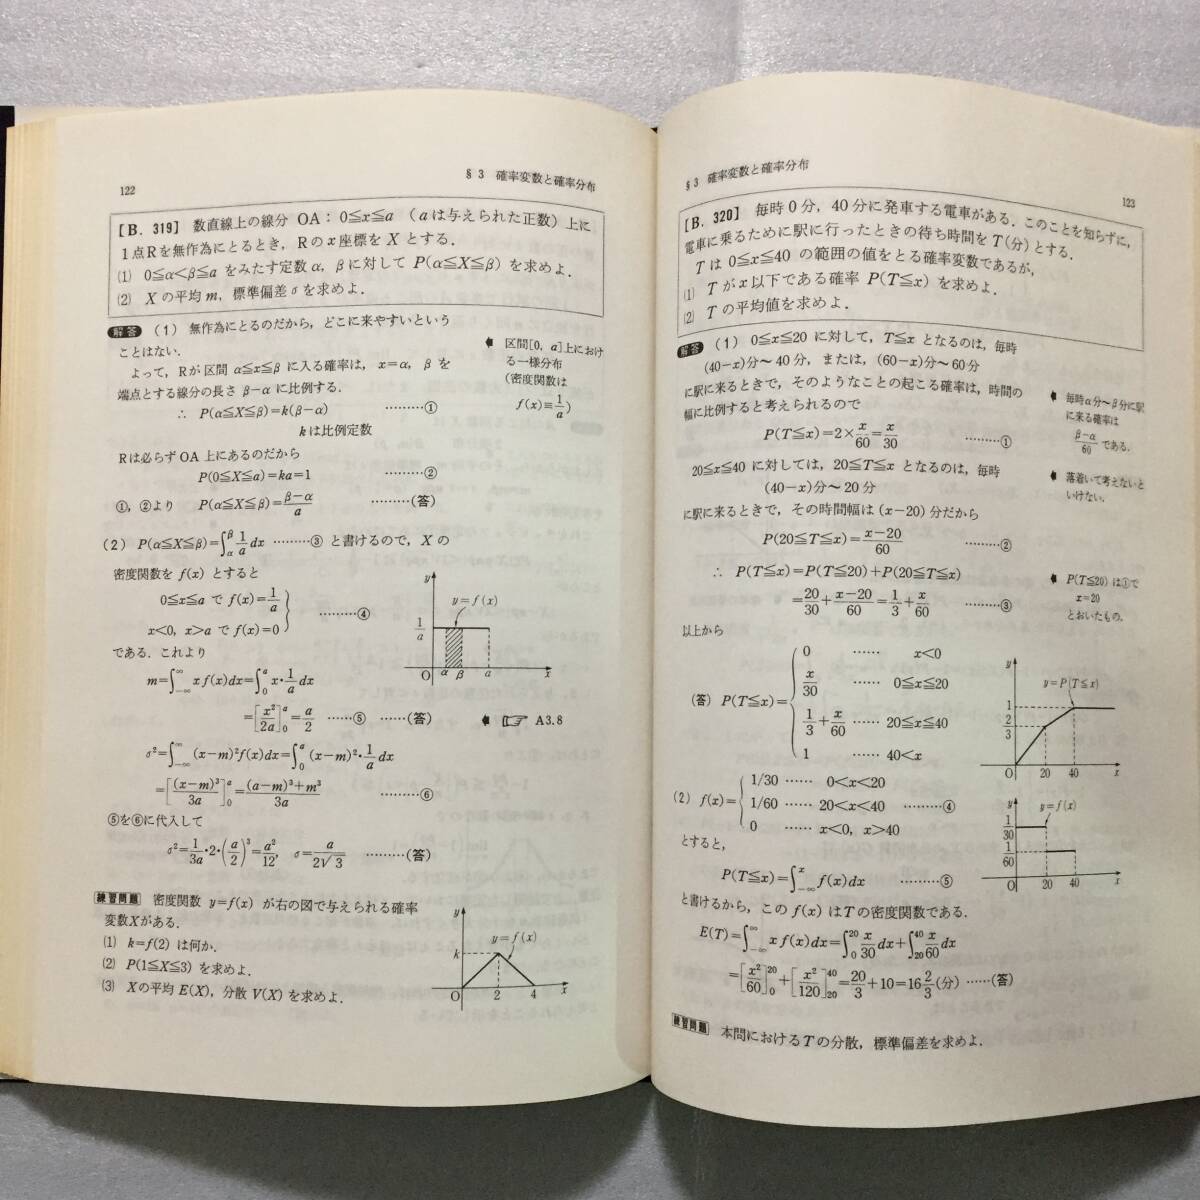 122
§3 確率変数と確率分布
[B. 319] 数直線上の線分 OA：0≦x≦a （aは与えられた正数）上に
1点Rを無作為にとるとき，Rのx座標をXとする．
(1) 0≦α<β≦a をみたす定数α，βに対して P(α≦X≦β) を求めよ．
(2) Xの平均m，標準偏差σを求めよ．
解答 (1) 無作為にとるのだから，どこに来やすいという
ことはない．
よって，Rが区間 α≦x≦β に入る確率は，x=α，β を
端点とする線分の長さ β−α に比例する．
∴ P(α≦X≦β)=k(β−α) ………①
kは比例定数
Rは必ずOA上にあるのだから
P(0≦X≦a)=ka=1 ………②
①，②より P(α≦X≦β)=(β−α)/a ………(答)
区間[0, a]上におけ
る一様分布
(密度関数は
f(x)≡1/a)
(2) P(α≦X≦β)=∫_α^β 1/a dx ………③ と書けるので，Xの
密度関数を f(x) とすると
0≦x≦a で f(x)=1/a
x<0, x>a で f(x)=0 ………④
である．これより
m=∫_{-∞}^{∞} xf(x)dx=∫_0^a x・1/a dx
=[x²/2a]_0^a=a/2 ……⑤ ……(答)
☞ A3.8
σ²=∫_{-∞}^{∞} (x−m)²f(x)dx=∫_0^a (x−m)²・1/a dx
=[(x−m)³/3a]_0^a=((a−m)³+m³)/3a ………⑥
⑤を⑥に代入して
σ²=1/3a・2・(a/2)³=a²/12, σ=a/2√3 ………(答)
y
y=f(x)
1/a
O α β a x
練習問題 密度関数 y=f(x) が右の図で与えられる確率
変数Xがある．
(1) k=f(2) は何か．
(2) P(1≦X≦3) を求めよ．
(3) Xの平均 E(X)，分散 V(X) を求めよ．
y
y=f(x)
k
O 2 4 x
§3 確率変数と確率分布
123
[B. 320] 毎時0分，40分に発車する電車がある．このことを知らずに，
電車に乗るために駅に行ったときの待ち時間をT(分)とする．
Tは 0≦x≦40 の範囲の値をとる確率変数であるが，
(1) Tがx以下である確率 P(T≦x) を求めよ．
(2) Tの平均値を求めよ．
解答 (1) 0≦x≦20 に対して，T≦x となるのは，毎時
(40−x)分〜40分，または，(60−x)分〜60分
に駅に来るときで，そのようなことの起こる確率は，時間の
幅に比例すると考えられるので
P(T≦x)=2×x/60=x/30 ………①
毎時α分〜β分に駅
に来る確率は
(β−α)/60 である．
20≦x≦40 に対しては，20≦T≦x となるのは，毎時
(40−x)分〜20分
落着いて考えないと
いけない．
に駅に来るときで，その時間幅は (x−20) 分だから
P(20≦T≦x)=(x−20)/60 ………②
∴ P(T≦x)=P(T≦20)+P(20≦T≦x)
=20/30+(x−20)/60=1/3+x/60 ………③
P(T≦20) は①で
x=20
とおいたもの．
以上から
(答) P(T≦x)=
0 …… x<0
x/30 …… 0≦x≦20
1/3+x/60 …… 20≦x≦40
1 …… 40<x
y
y=P(T≦x)
1
2/3
O 20 40 x
(2) f(x)=
1/30 …… 0<x<20
1/60 …… 20<x<40 ………④
0 …… x<0, x>40
y
y=f(x)
1/30
1/60
O 20 40 x
とすると，
P(T≦x)=∫_{-∞}^x f(x)dx ………⑤
と書けるから，この f(x) はTの密度関数である．
E(T)=∫_{-∞}^{∞} xf(x)dx=∫_0^20 x/30 dx+∫_20^40 x/60 dx
=[x²/60]_0^20+[x²/120]_20^40=20/3+10=16 2/3(分) ……(答)
練習問題 本問におけるTの分散，標準偏差を求めよ．